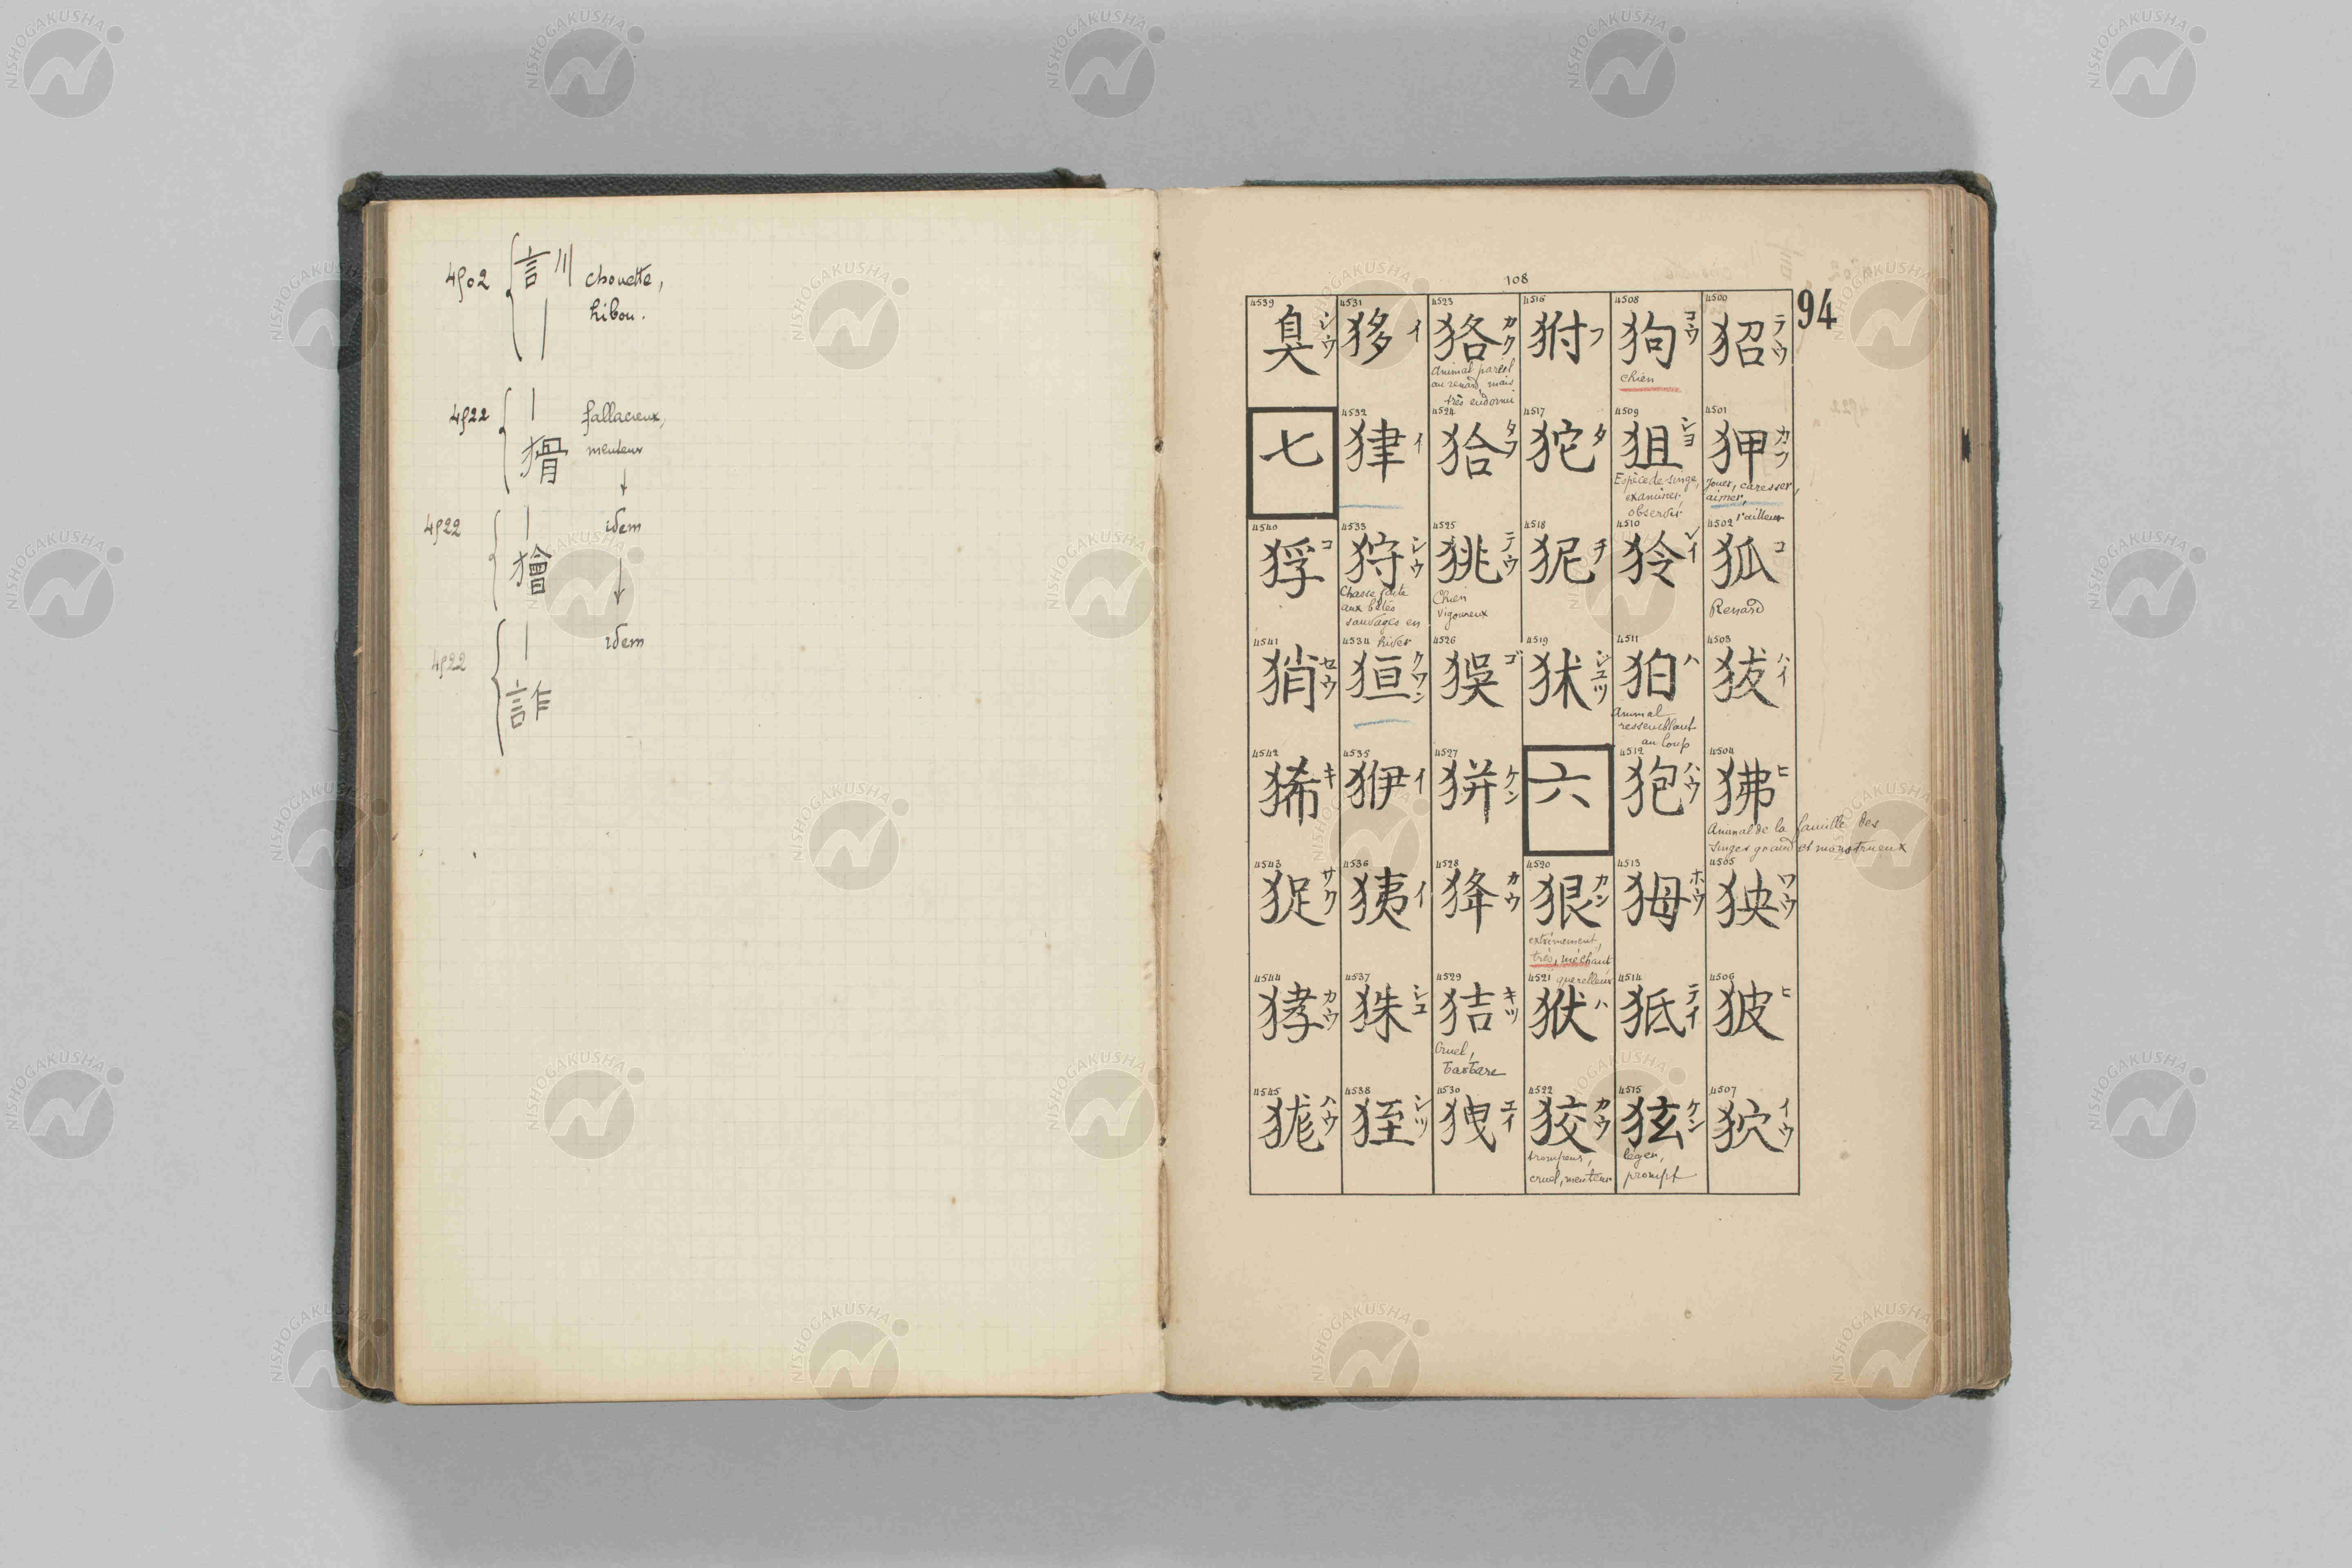 4502 訓 chouette,
| hibou.
4522 | fallacieux,
猾 menteur
4522 | idem
獪
4522 | idem
詐
108
94
4500 狣 テウ
4501 狎 カフ
Jouer, caresser,
aimer,
railleur
4502 狐 コ
Renard
4503 犮 ハイ
4504 狒 ヒ
Animal de la famille des
singes grand et monstrueux
4505 狹 ワウ
4506 狓 ヒ
4507 狖 イウ
4508 狗 コウ
chien
4509 狙 シヨ
Espèce de singe,
examiner,
observer
4510 狑 レイ
4511 狛 ハ
Animal
ressemblant
au loup
4512 狍 ハウ
4513 ホウ
4514 狋 テイ
4515 玆 ケン
léger,
prompt
4516 狕 フ
4517 狏 タ
4518 狔 チ
4519 狘 ジユツ
六
4520 狠 カン
extrêmement,
très, méchant
querelleur
4521 ハ
4522 狡 カウ
trompeur,
cruel, menteur
4523 狢 カク
Animal pareil
au renard, mais
très endormi
4524 狧 タフ
4525 狣 テウ
Chien
vigoureux
4526 ゴ
4527 ケン
4528 カウ
4529 狤 キツ
Cruel,
barbare
4530 エイ
4531 イ
4532 イ
4533 狩 シウ
Chasse faite
aux bêtes
sauvages en
hiver
4534 狟 クワン
4535 イ
4536 イ
4537 シユ
4538 シツ
4539 臭 シウ
七
4540 コ
4541 セウ
4542 狶 キ
4543 サク
4544 カウ
4545 ハウ
NISHOGAKUSHA